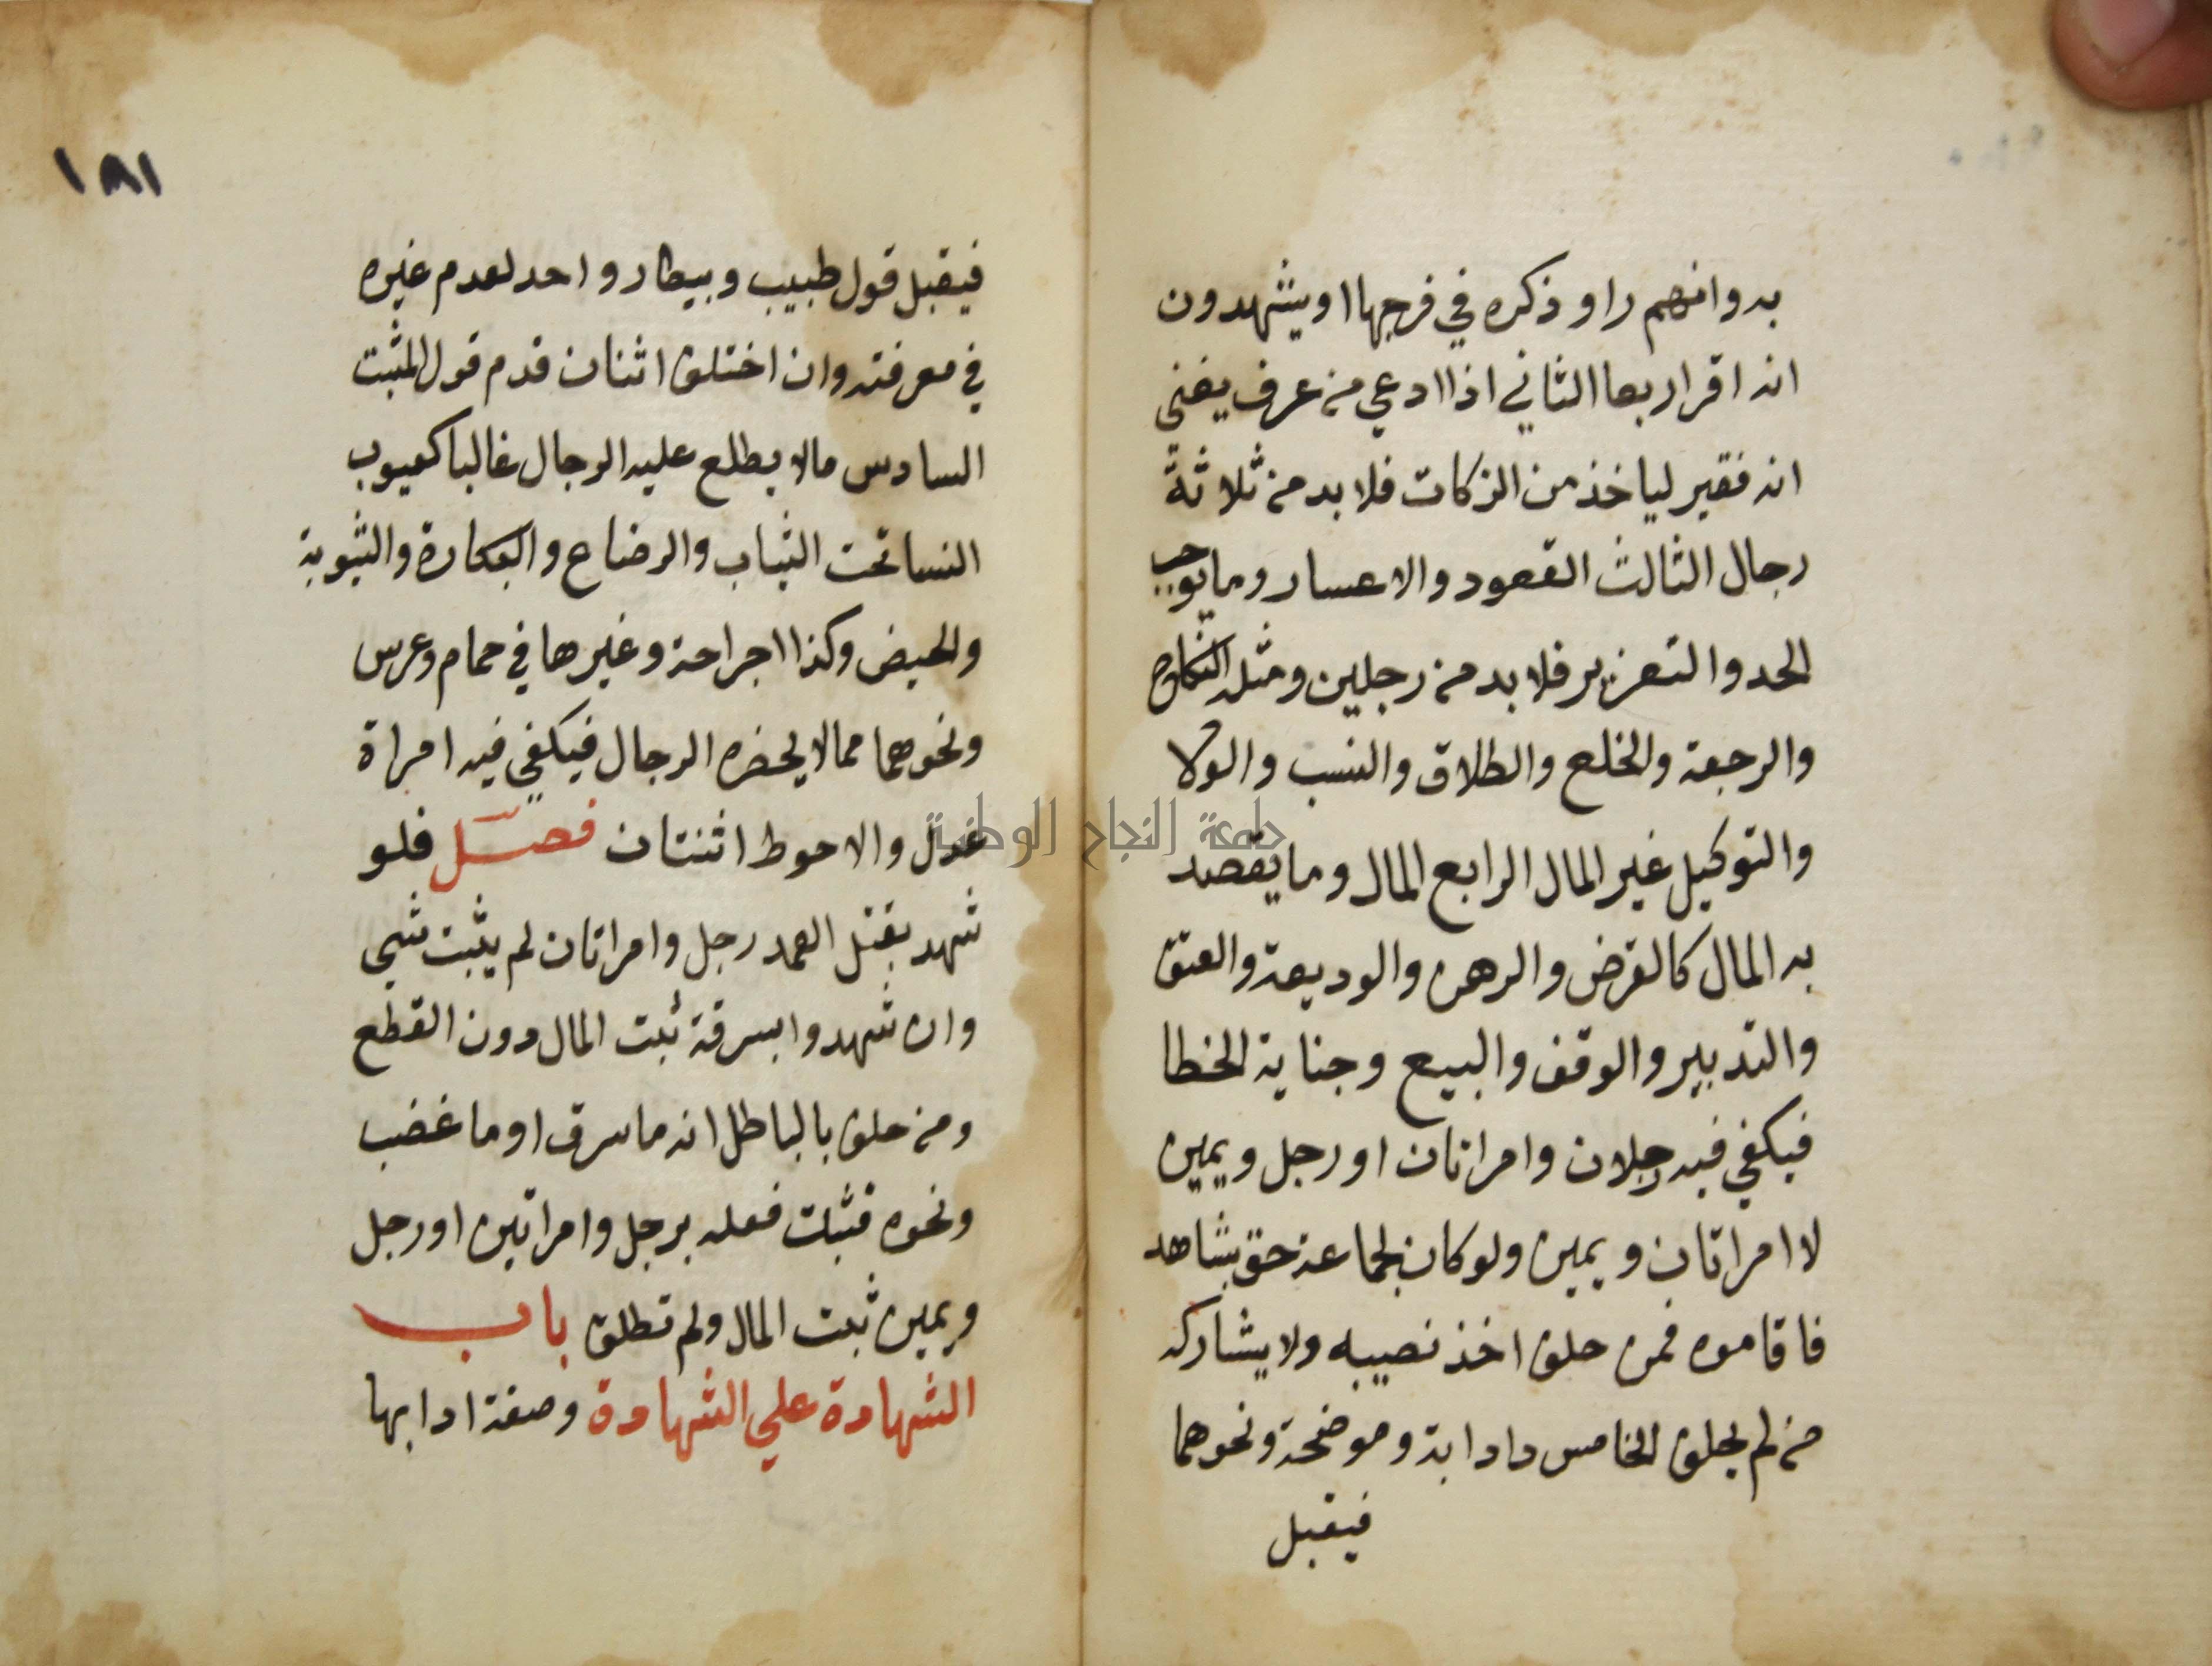 به وانهم راو ذكره في فرجها او يشهدون
انه اقر اربعا الثاني اذا ادعي من عرف بغني
انه فقير لياخذ من الزكات فلا بد من ثلاثة
رجال الثالث القعود والاعسار وما يوجب
الحد والتعزير فلا بد من رجلين ومثله النكاح
والرجعة والخلع والطلاق والنسب والولا
والتوكيل غير المال الرابع المال وما يقصد
به المال كالقرض والرهن والوديعة والعتق
والتدبير والوقف والبيع وجناية الخطا
فيكفي فيه رجلان وامراتان او رجل ويمين
لا امراتان ويمين ولو كان لجماعة حق بشاهد
فاقاموه فمن حلف اخذ نصيبه ولا يشاركه
من لم يحلف الخامس دا دابة وموضحة ونحوهما
فيقبل
١٨١
فيقبل قول طبيب وبيطار واحد لعدم غيره
في معرفته وان اختلف اثنان قدم قول المثبت
السادس مالا يطلع عليه الرجال غالبا كعيوب
النسا تحت الثياب والرضاع والبكارة والثيوبة
والحيض وكذا اجراحة وغيرها في حمام وعرس
ونحوهما مما لا يحضره الرجال فيكفي فيه امراة
عدل والاحوط اثنتان فصل فلو
شهد بقتل العمد رجل وامراتان لم يثبت شي
وان شهدوا بسرقة ثبت المال دون القطع
ومن حلف بالباطل انه ما سرق او ما غضب
ونحوه فثبت فعله برجل وامراتين او رجل
ويمين ثبت المال ولم تطلق باب
الشهادة علي الشهادة وصفة ادابها
جامعة النجاح الوطنية